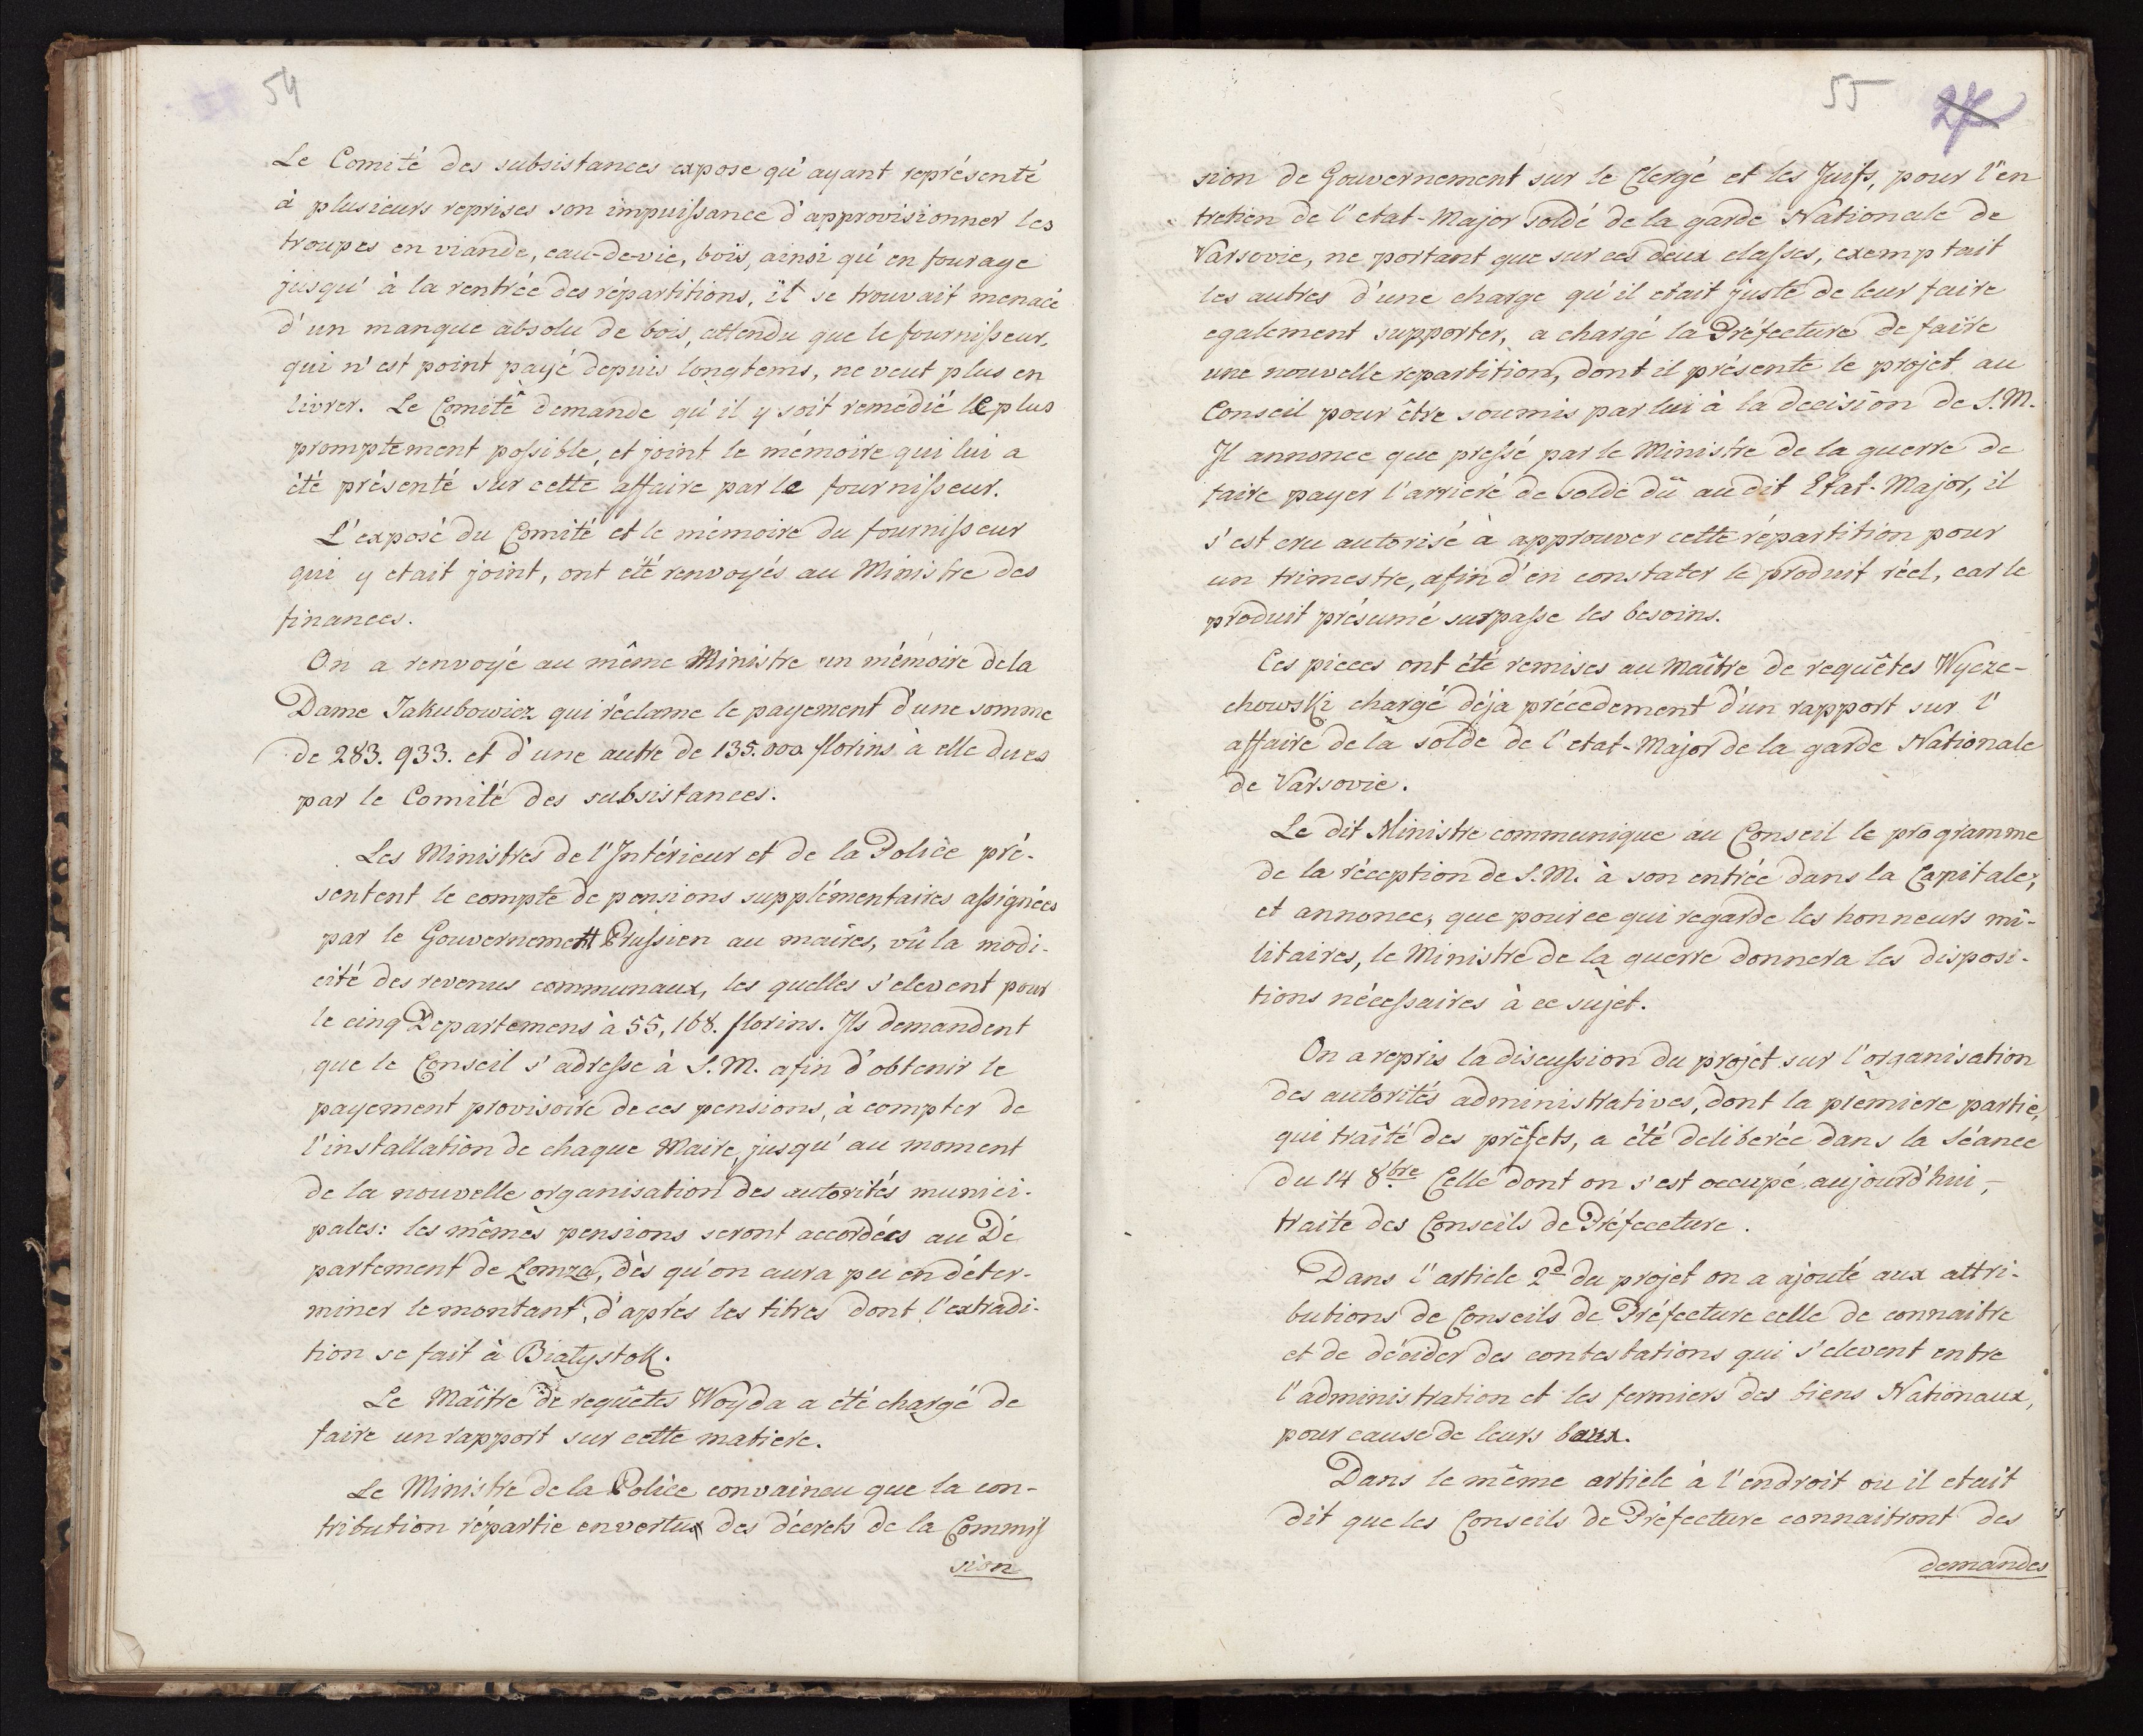 54
Le Comité des subsistances expose qu'ayant représenté
à plusieurs reprises son impuissance d'approvisionner les
troupes en viande, eau-de-vie, bois, ainsi qu'en fourage
jusqu'à la rentrée des répartitions, il se trouvait menacé
d'un manque absolu de bois, attendu que le fournisseur,
qui n'est point payé depuis longtems, ne veut plus en
livrer. Le Comité demande qu'il y soit remédié le plus
promptement possible, et joint le mémoire qui lui a
été présenté sur cette affaire par le fournisseur.
L'exposé du Comité et le mémoire du fournisseur
qui y etait joint, ont été renvoyés au Ministre des
finances.
On a renvoyé au même Ministre un mémoire de la
Dame Jakubowicz qui réclame le payement d'une somme
de 283.933. et d'une autre de 135.000 florins à elle dues
par le Comité des subsistances.
Les Ministres de l'Intérieur et de la Police pré-
sentent le compte de pensions supplémentaires assignées
par le Gouvernement Prussien au maires, vû la modi-
cité des revenus communaux, les quelles s'elevent pour
le cinq Departemens à 55,168. florins. Ils demandent
que le Conseil s'adresse à S.M. afin d'obtenir le
payement provisoire de ces pensions, à compter de
l'installation de chaque Maire, jusqu'au moment
de la nouvelle organisation des autorités munici-
pales: les mêmes pensions seront accordées au Dé
partement de Łomza, dès qu'on aura pu en déter-
miner le montant, d'aprés les titres dont l'extradi-
tion se fait à Białystok.
Le Maître de requêtes Woyda a été chargé de
faire un rapport sur cette matiere.
Le Ministre de la Police convaincu que la con-
tribution répartie en vertu des décrets de la Commis
sion
55 27
sion de Gouvernement sur le Clergé et les Juifs, pour l'en
tretien de l'etat-Major soldé de la garde Nationale de
Varsovie, ne portant que sur ces deux classes, exemptait
les autres d'une charge qu'il etait juste de leur faire
egalement supporter, a chargé la Préfecture de faire
une nouvelle repartition, dont il présente le projet au
Conseil pour être soumis par lui à la decision de S.M.
Il annonce que pressé par le Ministre de la guerre de
faire payer l'arrieré de solde dû au dit Etat-Major, il
s'est cru autorisé à approuver cette répartition pour
un trimestre, afin d'en constater le produit réel, car le
produit présumé surpasse les besoins.
Ces pieces ont été remises au Maître de requêtes Wycze-
chowski chargé déja précedement d'un rapport sur l'
affaire de la solde de l'etat-Major de la garde Nationale
de Varsovie.
Le dit Ministre communique au Conseil le programme
de la réception de S.M. à son entrée dans la Capitale,
et annonce, que pour ce qui regarde les honneurs mi-
litaires, le Ministre de la guerre donnera les disposi-
tions nécessaires à ce sujet.
On a repris la discussion du projet sur l'organisation
des autorités administratives, dont la premiere partie,
qui traite des préfets, a été deliberée dans la Séance
du 14 8bre Celle dont on s'est occupé aujourd'hui,-
traite des Conseils de Préfecture.
Dans l'article 2d du projet on a ajouté aux attri-
butions de Conseils de Préfecture celle de connaitre
et de décider des contestations qui s'elevent entre
l'administration et les fermiers des biens Nationaux,
pour cause de leurs baux.
Dans le même article à l'endroit ou il etait
dit que les Conseils de Préfecture connaitront des
demandes